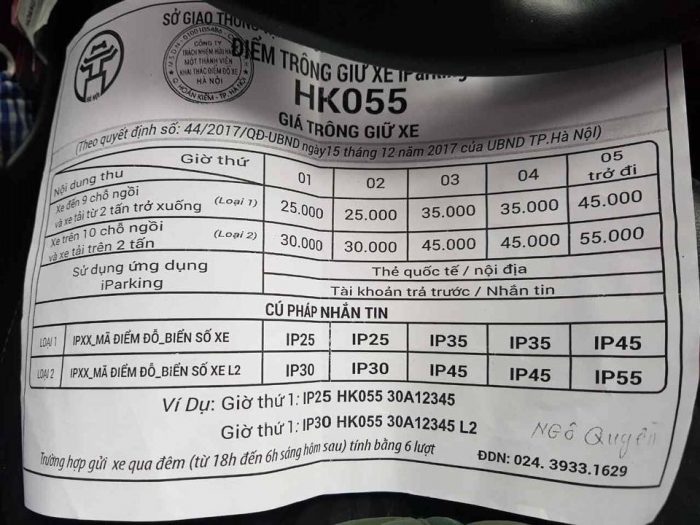 HÀ NỘI
SỞ GIAO THÔNG
M.S.D.N: 0100105486
CÔNG TY
TRÁCH NHIỆM HỮU HẠN
MỘT THÀNH VIÊN
KHAI THÁC ĐIỂM ĐỖ XE
HÀ NỘI
Q.HOÀN KIẾM - TP.HÀ NỘI
ĐIỂM TRÔNG GIỮ XE iParking
HK055
GIÁ TRÔNG GIỮ XE
(Theo quyết định số: 44/2017/QĐ-UBND ngày 15 tháng 12 năm 2017 của UBND TP.Hà Nội)
Nội dung thu Giờ thứ 01 02 03 04 05 trở đi
Xe đến 9 chỗ ngồi
và xe tải từ 2 tấn trở xuống (Loại 1) 25.000 25.000 35.000 35.000 45.000
Xe trên 10 chỗ ngồi
và xe tải trên 2 tấn (Loại 2) 30.000 30.000 45.000 45.000 55.000
Sử dụng ứng dụng
iParking
Thẻ quốc tế / nội địa
Tài khoản trả trước / Nhắn tin
CÚ PHÁP NHẮN TIN
LOẠI 1 IPXX_MÃ ĐIỂM ĐỖ_BIỂN SỐ XE IP25 IP25 IP35 IP35 IP45
LOẠI 2 IPXX_MÃ ĐIỂM ĐỖ_BIỂN SỐ XE L2 IP30 IP30 IP45 IP45 IP55
Ví Dụ: Giờ thứ 1: IP25 HK055 30A12345
Giờ thứ 1: IP30 HK055 30A12345 L2
Ngô Quyền
Trường hợp gửi xe qua đêm (từ 18h đến 6h sáng hôm sau) tính bằng 6 lượt
ĐDN: 024. 3933.1629